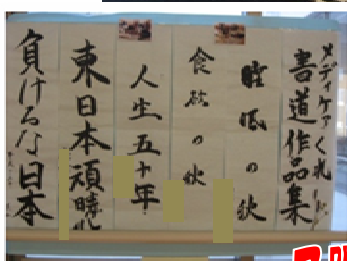 メディケア
書道作品集
睡眠の秋
食欲の秋
人生五十年
東日本頑晴
負けるな日本